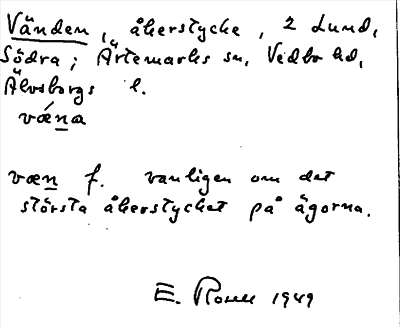 Vänden, åkerstycke, 2 Lund,
Södra; Ärtemarks sn, Vedbo hd,
Älvsborgs l.
vǽna
væn f. vanligen om det
största åkerstycket på ägorna.
E. Rosell 1949